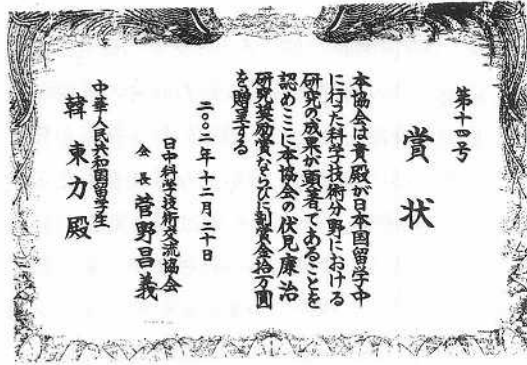 第十四号
賞状
本協会は貴殿が日本国留学中
に行った科学技術分野における
研究の成果が顕著であることを
認めここに本協会の伏見康治
研究奨励賞ならびに副賞金拾万圓
を贈呈する
二〇〇二年十二月二十日
日中科学技術交流協会
会長 菅野昌義
中華人民共和国留学生
韓東力殿